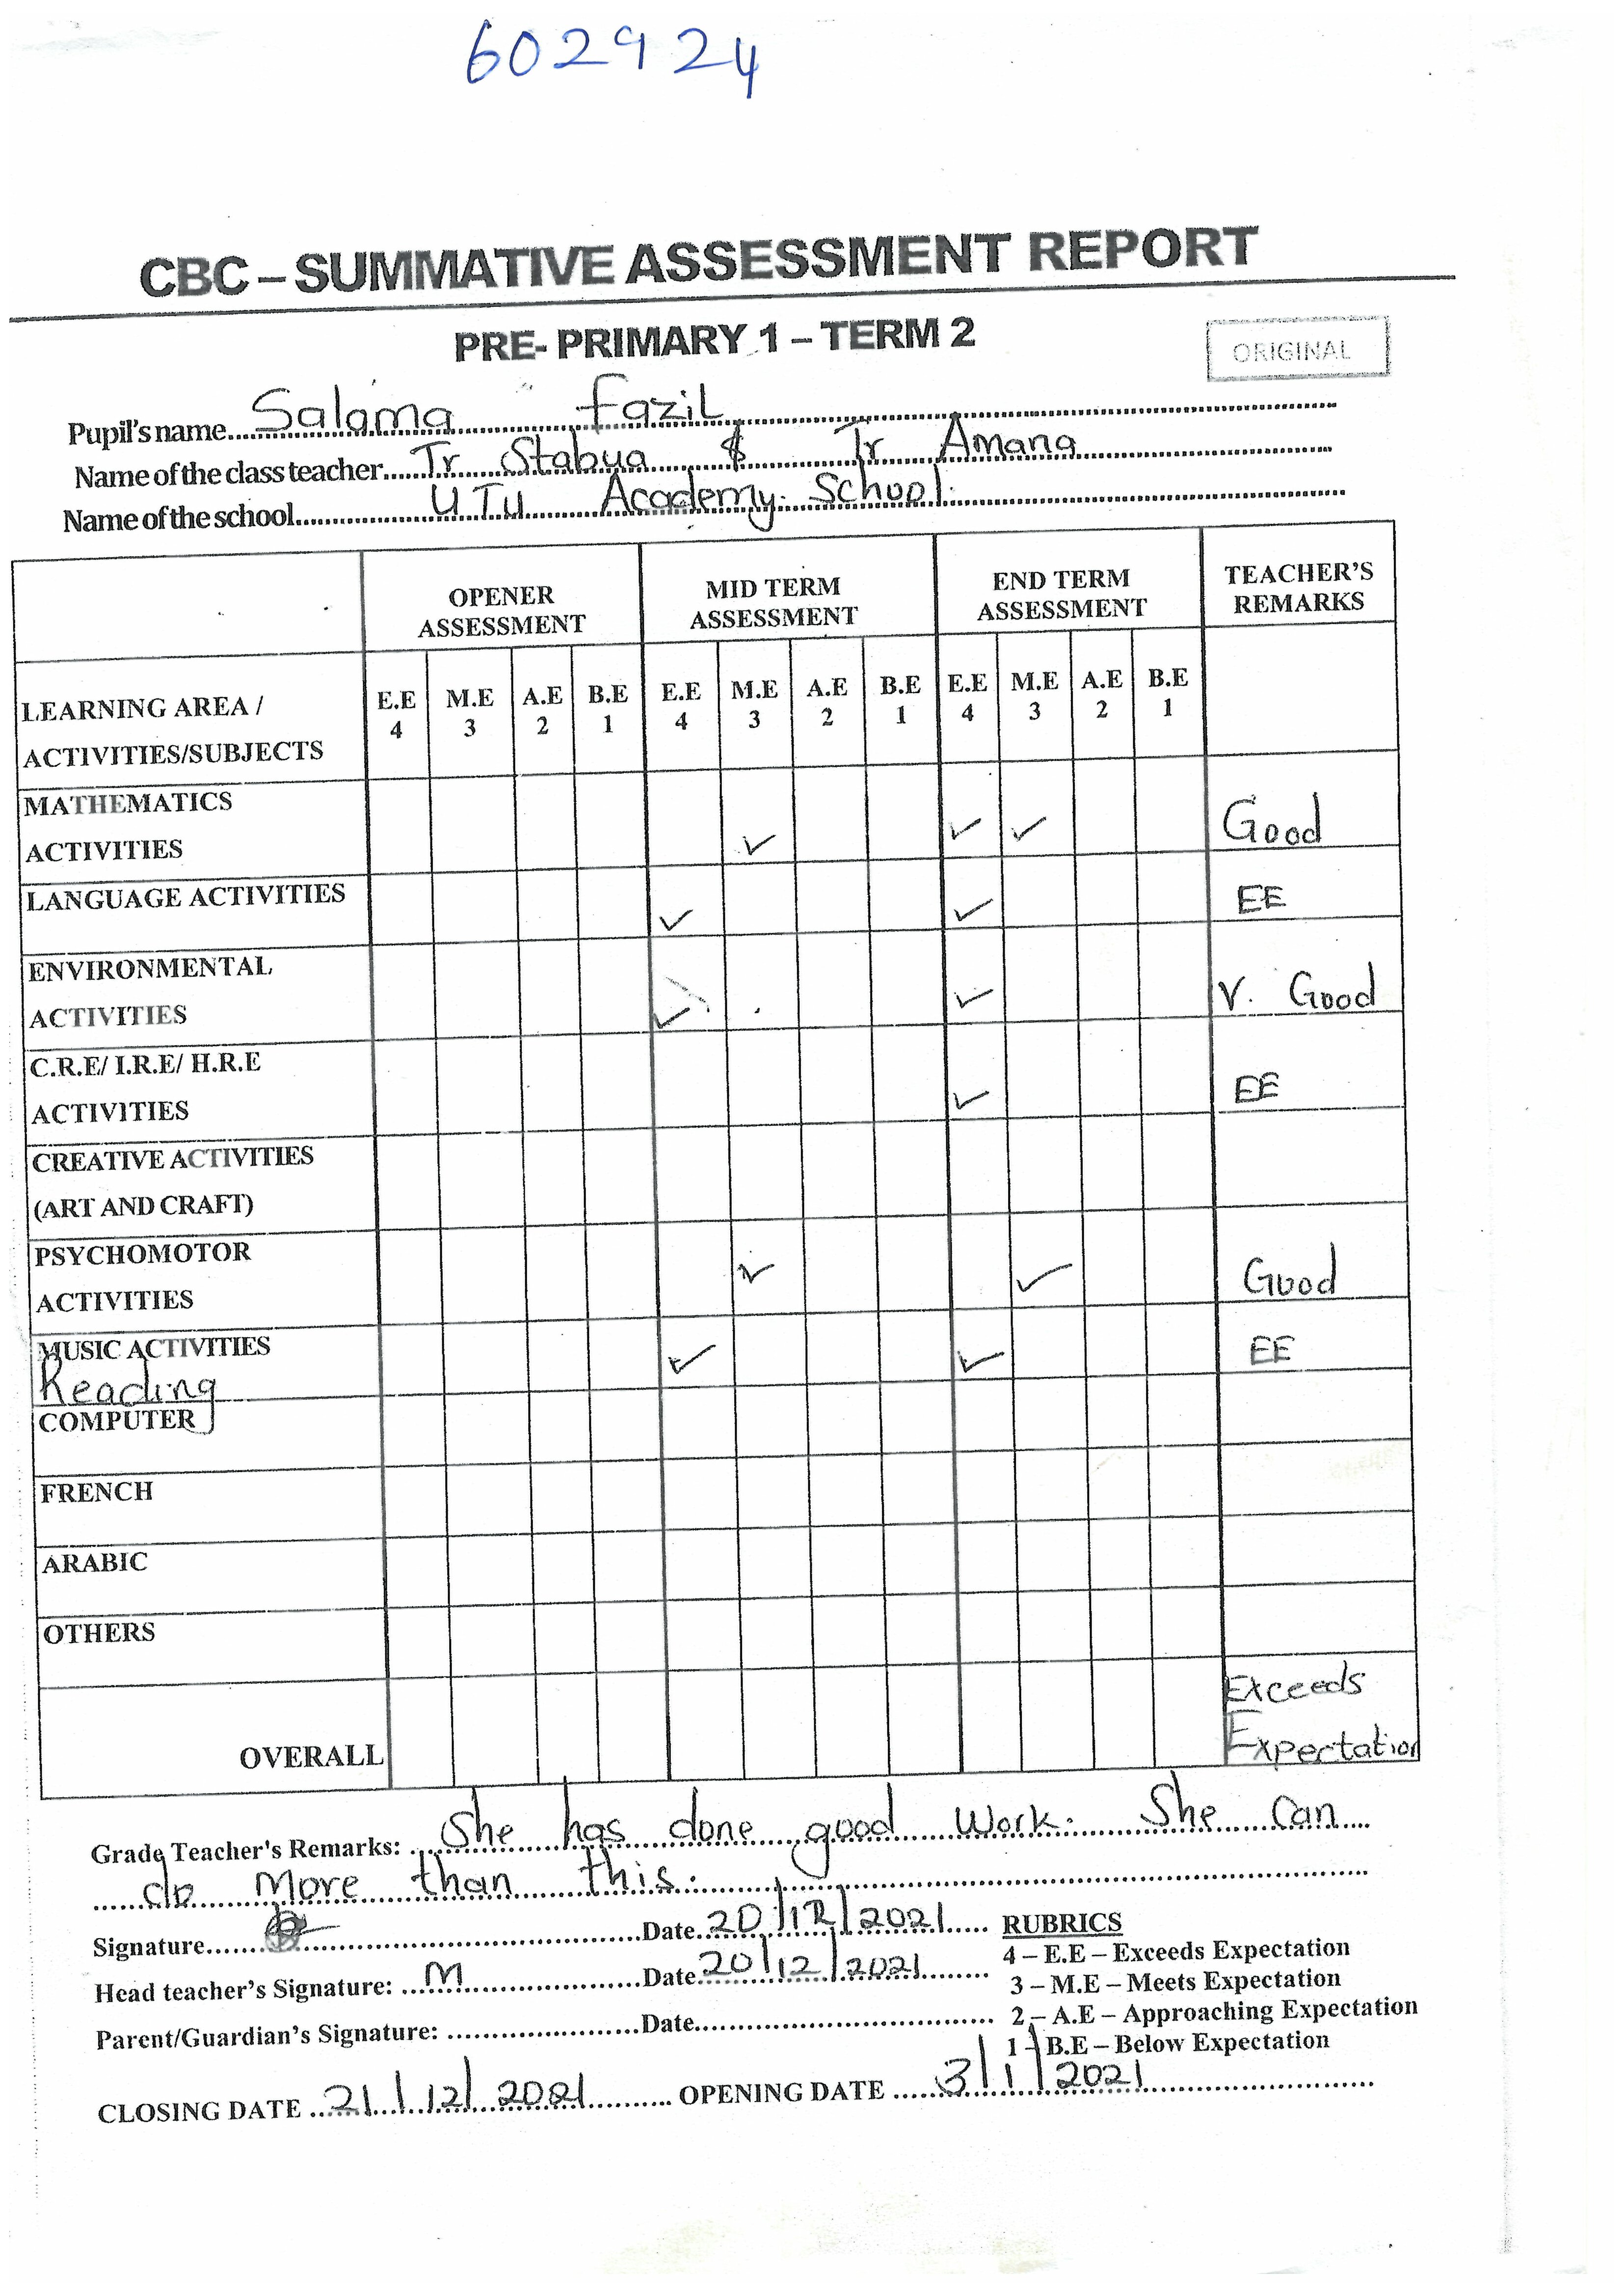 602924
CBC – SUMMATIVE ASSESSMENT REPORT
PRE- PRIMARY 1 – TERM 2
ORIGINAL
Pupil's name Salama Fazil
Name of the class teacher Tr Stabua $ Tr Amana
Name of the school UTU Academy School
OPENER ASSESSMENT MID TERM ASSESSMENT END TERM ASSESSMENT TEACHER'S REMARKS
LEARNING AREA / ACTIVITIES/SUBJECTS E.E 4 M.E 3 A.E 2 B.E 1 E.E 4 M.E 3 A.E 2 B.E 1 E.E 4 M.E 3 A.E 2 B.E 1
MATHEMATICS ACTIVITIES ✓ ✓ ✓ Good
LANGUAGE ACTIVITIES ✓ ✓ EE
ENVIRONMENTAL ACTIVITIES ✓ ✓ V. Good
C.R.E/ I.R.E/ H.R.E ACTIVITIES ✓ EE
CREATIVE ACTIVITIES (ART AND CRAFT)
PSYCHOMOTOR ACTIVITIES ✓ ✓ Good
MUSIC ACTIVITIES Reading ✓ ✓ EE
COMPUTER
FRENCH
ARABIC
OTHERS
OVERALL Exceeds Expectation
Grade Teacher's Remarks: She has done good work. She can
do more than this.
Signature Date 20/12/2021
Head teacher's Signature: M Date 20/12/2021
Parent/Guardian's Signature: Date
RUBRICS
4 – E.E – Exceeds Expectation
3 – M.E – Meets Expectation
2 – A.E – Approaching Expectation
1 – B.E – Below Expectation
CLOSING DATE 21/12/2021 OPENING DATE 3/1/2021